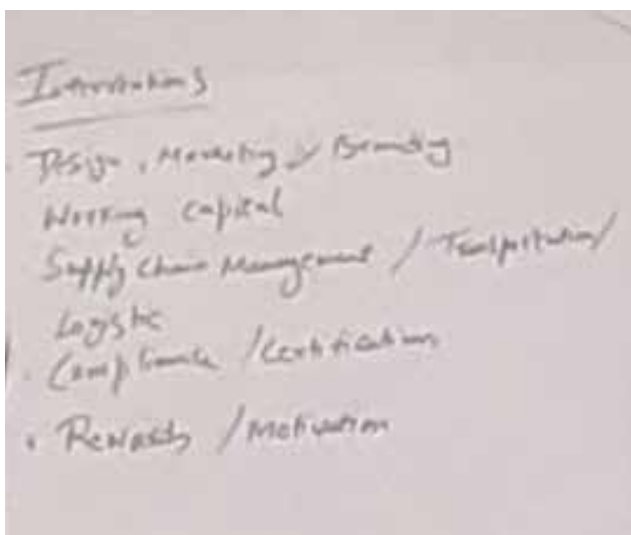 Interventions
Design, Marketing / Branding
Working Capital
Supply Chain Management / Transportation /
Logistic
Compliance / Certification
• Rewards / Motivation